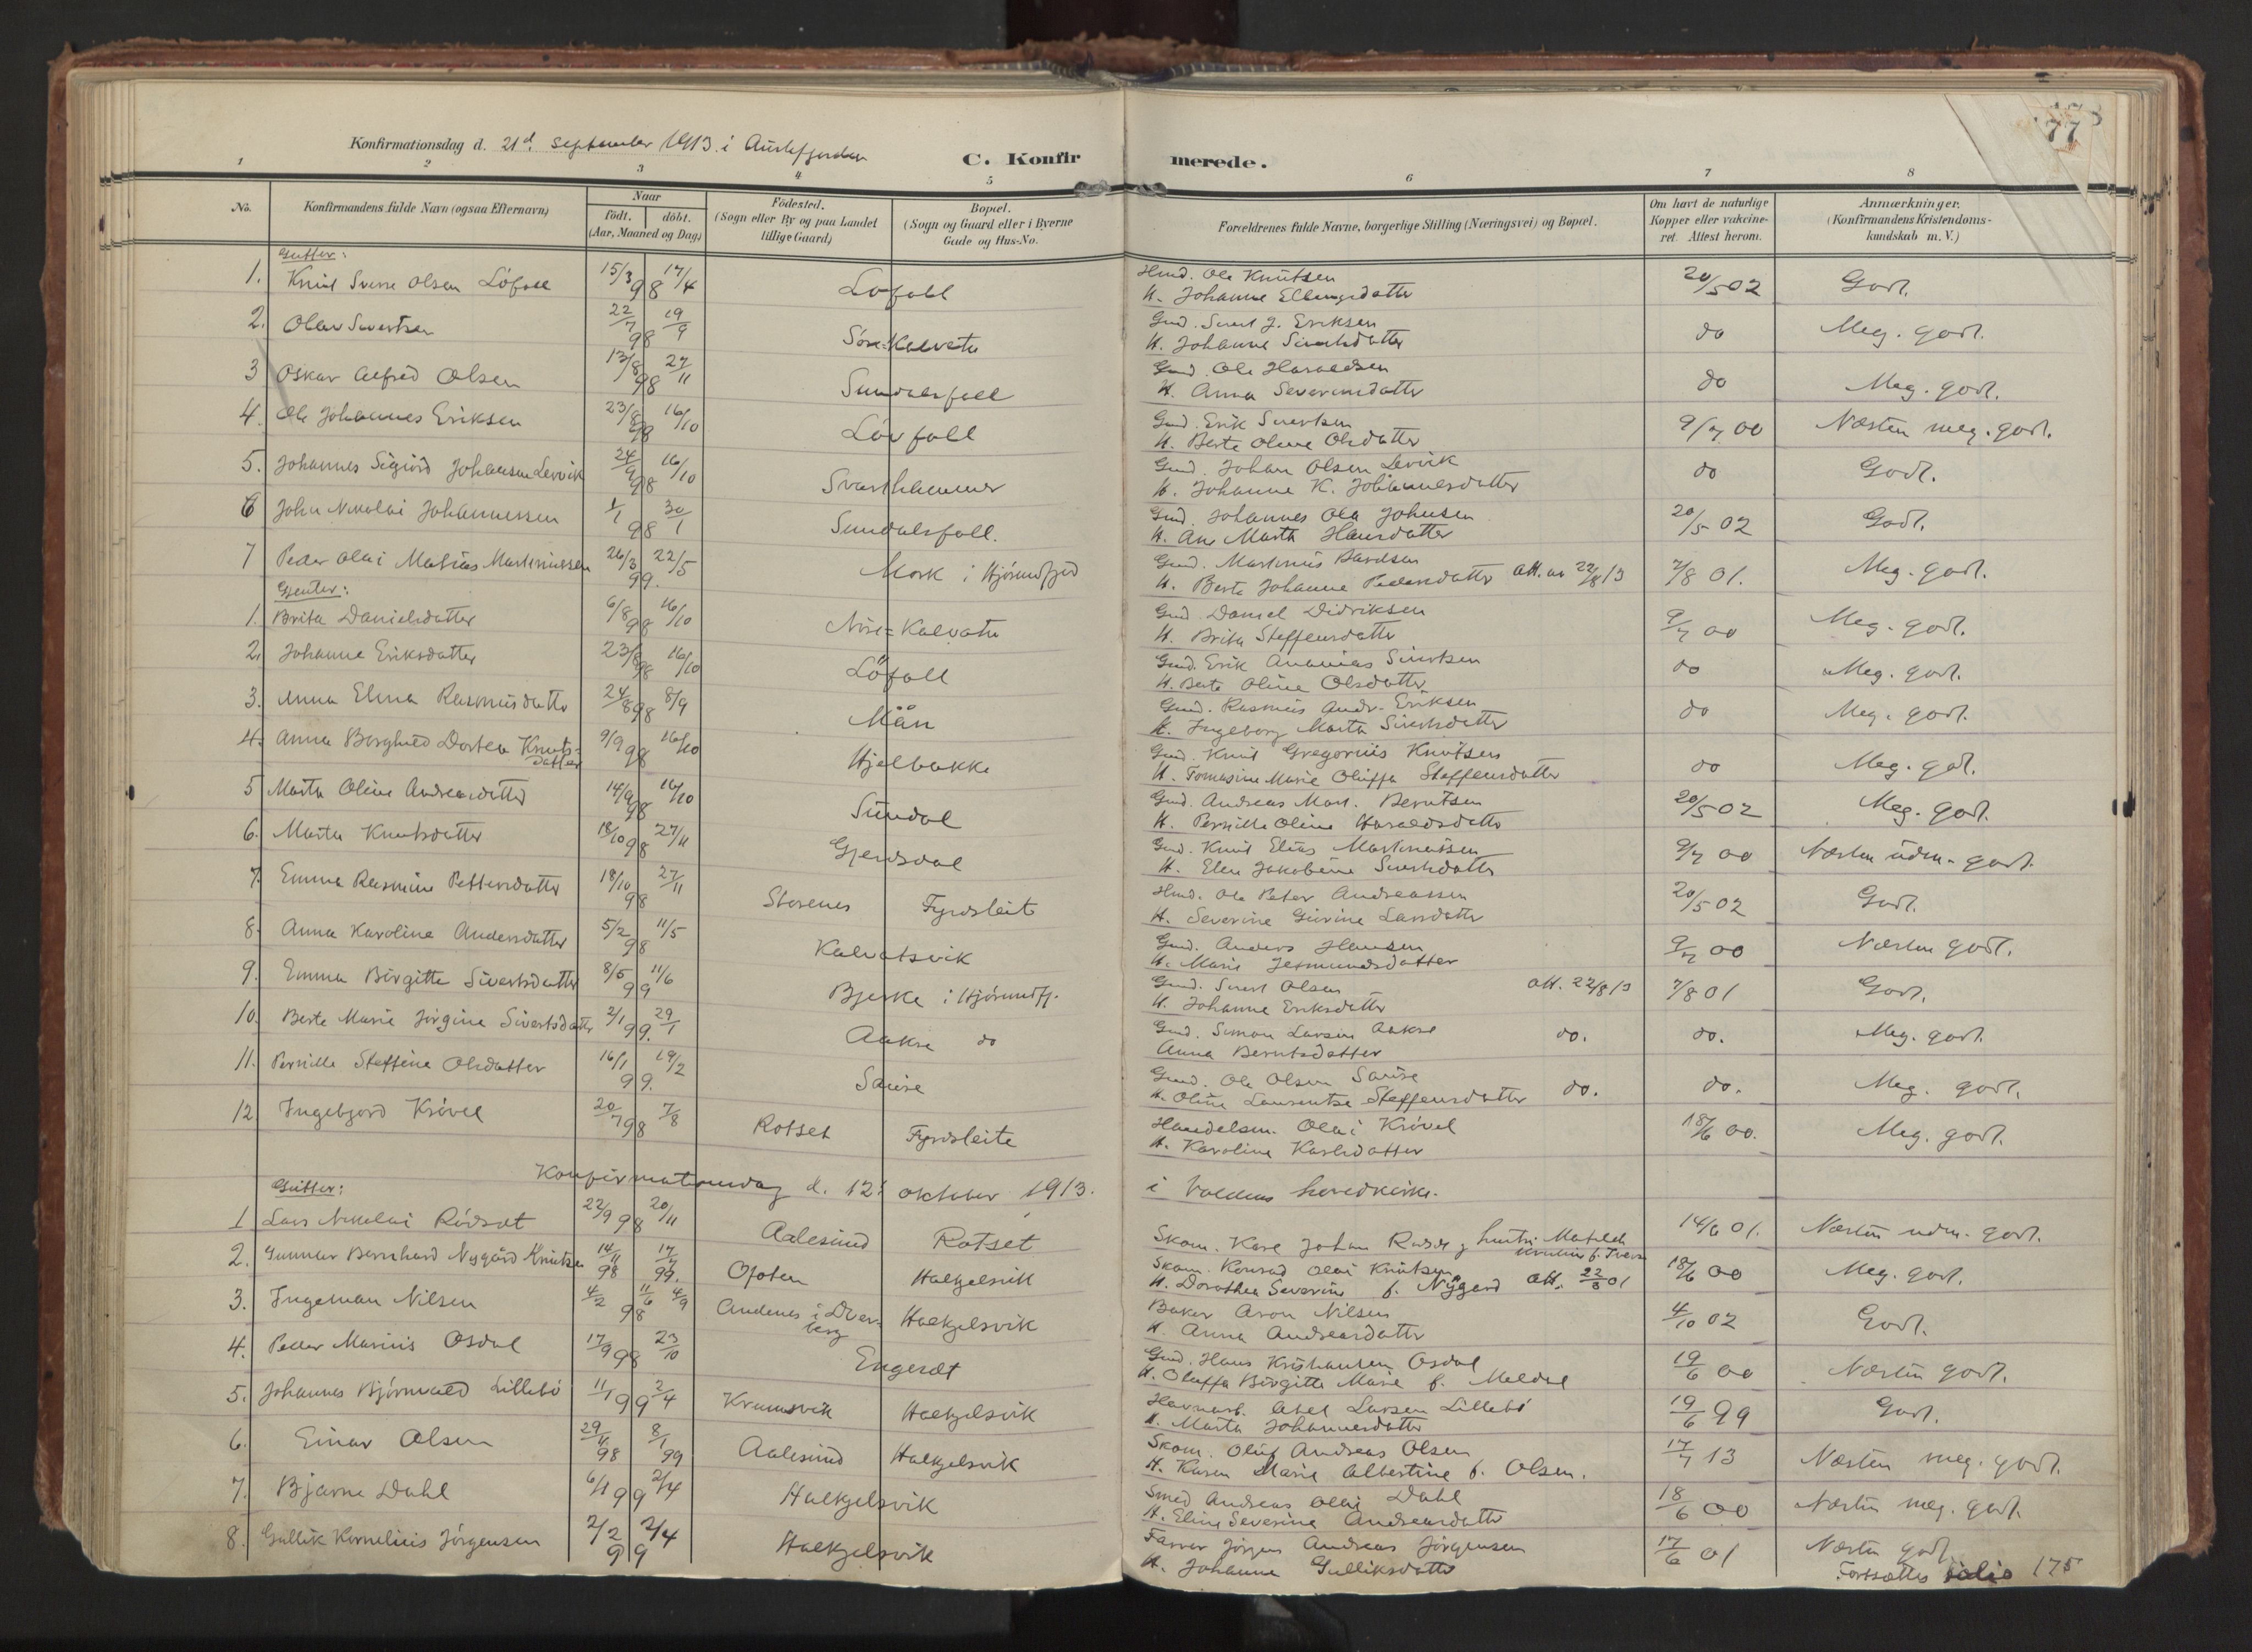 Konfirmationsdag d. 21d. September 1913. i Austefjorden
C. Konfirmerede.
77
1 2 3 4 5 6 7 8
No. Konfirmandens fulde Navn (ogsaa Efternavn) Naar födt. döbt. (Aar, Maaned og Dag) Födested. (Sogn eller By og paa Landet tillige Gaard) Bopæl. (Sogn og Gaard eller i Byerne Gade og Hus-No. Forældrenes fulde Navne, borgerlige Stilling (Næringsvei) og Bopæl. Om havt de naturlige Kopper eller vakcineret. Attest herom. Anmærkninger. (Konfirmandens Kristendomskundskab m. V.)
Gutter:
1. Knut Sverre Olsen Löfoll 15/3 98 17/4 Löfoll Hmd. Ole Knutsen H. Johanne Ellingsdatter 20/5 02 Godt.
2. Olav Sivertsen 22/7 98 19/9 Søre-Kalvatn Gmd. Sivert J. Eriksen H. Johanne Sivertsdatter do Meg. godt.
3 Oskar Alfred Olsen 13/8 98 27/11 Sundalsfoll Gmd. Ole Haraldsen H. Anna Severinsdatter do Meg. godt.
4. Ole Johannes Eriksen 23/8 98 16/10 Lövfoll Gmd. Erik Sivertsen H. Berte Oline Olsdatter 9/7 00 Næsten meg. godt.
5. Johannes Sigurd Johansen Levvik 24/9 98 16/10 Svarthammer Gmd. Johan Olsen Levvik H. Johanne K. Johannesdatter do Godt.
6 John Nikolai Johannessen 1/1 98 30/1 Sundalsfoll. Gmd. Johannes Ola Johnsen H. Ane Marta Hansdatter 20/5 02 Godt.
7 Peder Olai Matias Martinussen 26/3 99. 22/5 Mork i Hjörundfjord Gmd. Martinus Davidsen H. Berte Johanne Pedersdatter Att. av 22/8 13 7/8 01. Meg. godt.
Gjenter:
1. Brita Danielsdatter 6/8 98 16/10 Nöre=Kalvatn Gmd. Daniel Didriksen H. Brita Steffensdatter 9/7 00 Meg. godt.
2. Johanne Eriksdatter 23/8 98 16/10 Löfoll Gmd. Erik Ananias Sivertsen H. Berte Oline Olsdatter do Meg. godt.
3. Anna Elina Rasmusdatter 24/8 98 8/9 Mån Gmd. Rasmus Andr. Eriksen H. Ingeborg Marta Sivertsdatter do Meg. godt.
4. Anna Borghild Dortea Knutsdatter 9/9 98 16/10 Hjelbakke Gmd. Knut Gregorius Knutsen H. Tomasine Marie Oluffa Steffensdatter do Meg. godt.
5 Marta Oline Andreasdatter 14/9 98 16/10 Sundal Gmd. Andreas Mart. Berntsen H. Pernille Oline Haraldsdatter 20/5 02 Meg. godt.
6. Marta Knutsdatter 18/10 98 27/11 Gjerdsdal Gmd. Knut Elias Martinussen H. Elen Jakobine Sivertsdatter 9/7 00 Næsten udm. godt.
7. Emma Rasmine Pettersdatter 18/10 98 27/11 Storenes Fyrdsleite Hmd. Ole Peter Andreassen H. Severine Gurine Larsdatter 20/5 02 Godt.
8. Anna Karoline Andersdatter 5/2 98 11/5 Kalvatsvik Gmd. Anders Hansen H. Marie Jetmundsdatter 9/7 00 Næsten godt.
9. Emma Birgitte Sivertsdatter 8/5 99 11/6 Bjerke i Hjörundfj. Gmd. Sivert Olsen H. Johanne Eriksdatter Att. 22/8 13 7/8 01 Godt.
10. Berte Marie Jörgine Sivertsdatter 2/1 99. 29/1 Aakre do Gmd. Simon Larsen Aakre Anna Berntsdatter do. do. Meg. godt.
11. Pernille Steffine Olsdatter 16/1 99. 19/2 Saure Gmd. Ole Olsen Saure H. Oline Laurentse Steffensdatter do. do. Meg. godt.
12. Ingebjord Krövel 20/7 98 7/8 Rotset Fyrdsleite Handelsm. Olai Krövel H. Karoline Karlsdatter 18/6 00. Meg. godt.
Konfirmationsdag d. 12. oktober 1913. i Voldens hovedkirke.
Gutter:
1 Lars Nikolai Rödset 22/9 98 20/11 Aalesund Rotset Skom. Karl Johan Rødset og hustru Matilde 14/6 01. Næsten udm. godt.
2. Gunnar Bernhard Nygård Knutsen 14/11 98 17/4 99. Ofoten Halkjelsvik Skom. Konrad Olai Knutsen H. Dorothea Severine f. Nygård Att. 22/8 01 18/6 00 Meg. godt.
3. Ingeman Nilsen 4/2 98 4/9 Andenes i Dverberg Halkjelsvik Baker Aron Nilsen H. Anna Andreasdatter 4/10 02 Godt.
4. Peder Marius Osdal 17/9 98 23/10 Engeset Gmd. Hans Kristiansen Osdal H. Oluffa Birgitte Marie f. Meldal 19/6 00 Næsten godt.
5. Johannes Bjørnvald Lillebö 11/1 99 2/4 Krumsvik Halkjelsvik Havnarb. Abel Larsen Lillebö H. Marta Johannesdatter 19/6 99 Godt.
6. Einar Olsen 29/11 98 8/1 99 Aalesund Halkjelsvik Skom. Oluf Andreas Olsen H. Karen Marie Albertine f. Olsen. 17/7 13 Næsten meg. godt.
7. Bjarne Dahl 6/1 99 2/4 Halkjelsvik Smed Andreas Olai Dahl H. Eline Severine Andreasdatter 18/6 00 Næsten meg. godt.
8. Gullik Kornelius Jörgensen 2/2 99 2/4 Halkjelsvik Farver Jörgen Andreas Jörgensen H. Johanne Gulliksdatter 17/6 01 Næsten godt.
Fortsættes folio 175